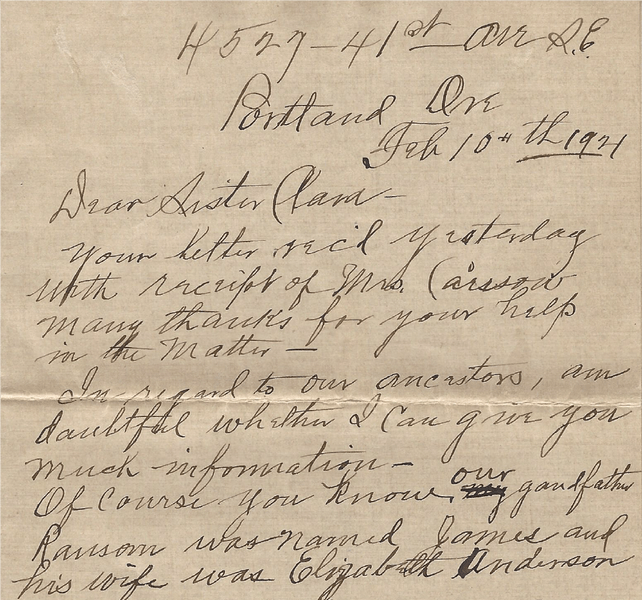 4527 - 41st Ave S.E.
Portland Ore
Feb 10th 1921
Dear Sister Clara -
Your letter rec'd yesterday
with receipt of Mrs. Carson
many thanks for your help
in the Matter -
In regard to our ancestors, am
doubtful whether I can give you
much information -
Of course you know our gandfather
Ransom was named James and
his wife was Elizabeth Anderson